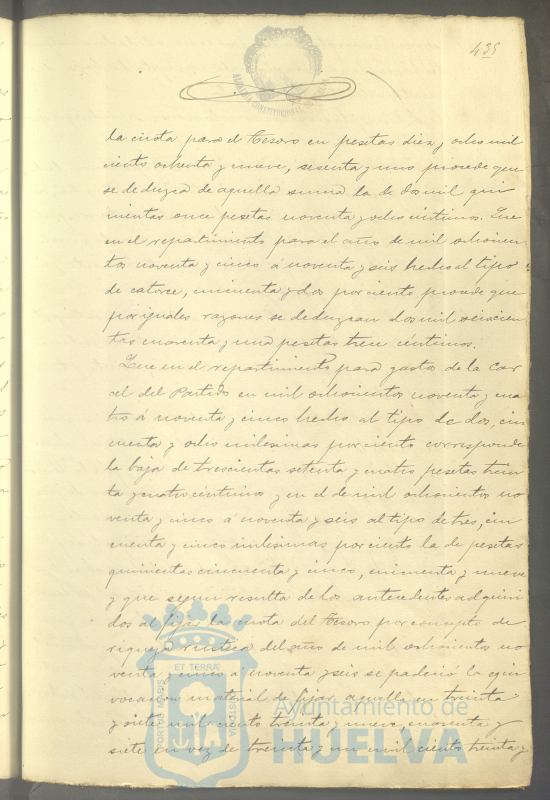 435
la cuota para el Tesoro en pesetas diez y ocho mil
ciento ochenta y nueve, sesenta y uno procede que
se deduzca de aquella suma la de dos mil qui
nientas once pesetas noventa y ocho céntimos. Que
en el repartimiento para el año de mil ochocien
tos noventa y cinco á noventa y seis hecho al tipo
de catorce, cincuenta y dos por ciento procede que
por iguales razones se deduzcan dos mil seiscien
tas cuarenta y una pesetas trece céntimos.
Que en el repartimiento para gastos de la Car
cel del Partido en mil ochocientos noventa y cua
tro á noventa y cinco hecho al tipo de dos, cin
cuenta y ocho milesimas por ciento corresponde
la baja de trescientas setenta y cuatro pesetas trein
ta y cuatro céntimos y en el de mil ochocientos no
venta y cinco á noventa y seis al tipo de tres, cin
cuenta y cinco milesimas por ciento la de pesetas
quinientas cincuenta y cinco, cincuenta y nueve
y que segun resulta de los antecedentes adquiri
dos al fijar la cuota del Tesoro por concepto de
riqueza rustica del año de mil ochocientos no
venta y cinco á noventa y seis se padeció la equi
vocacion material de fijar aquella en treinta
y siete mil ciento treinta y nueve, cuarenta y
siete en vez de treinta y un mil ciento treinta y
ET TERRAE
PORTUS MARIS
CUSTODIA
Ayuntamiento de
HUELVA